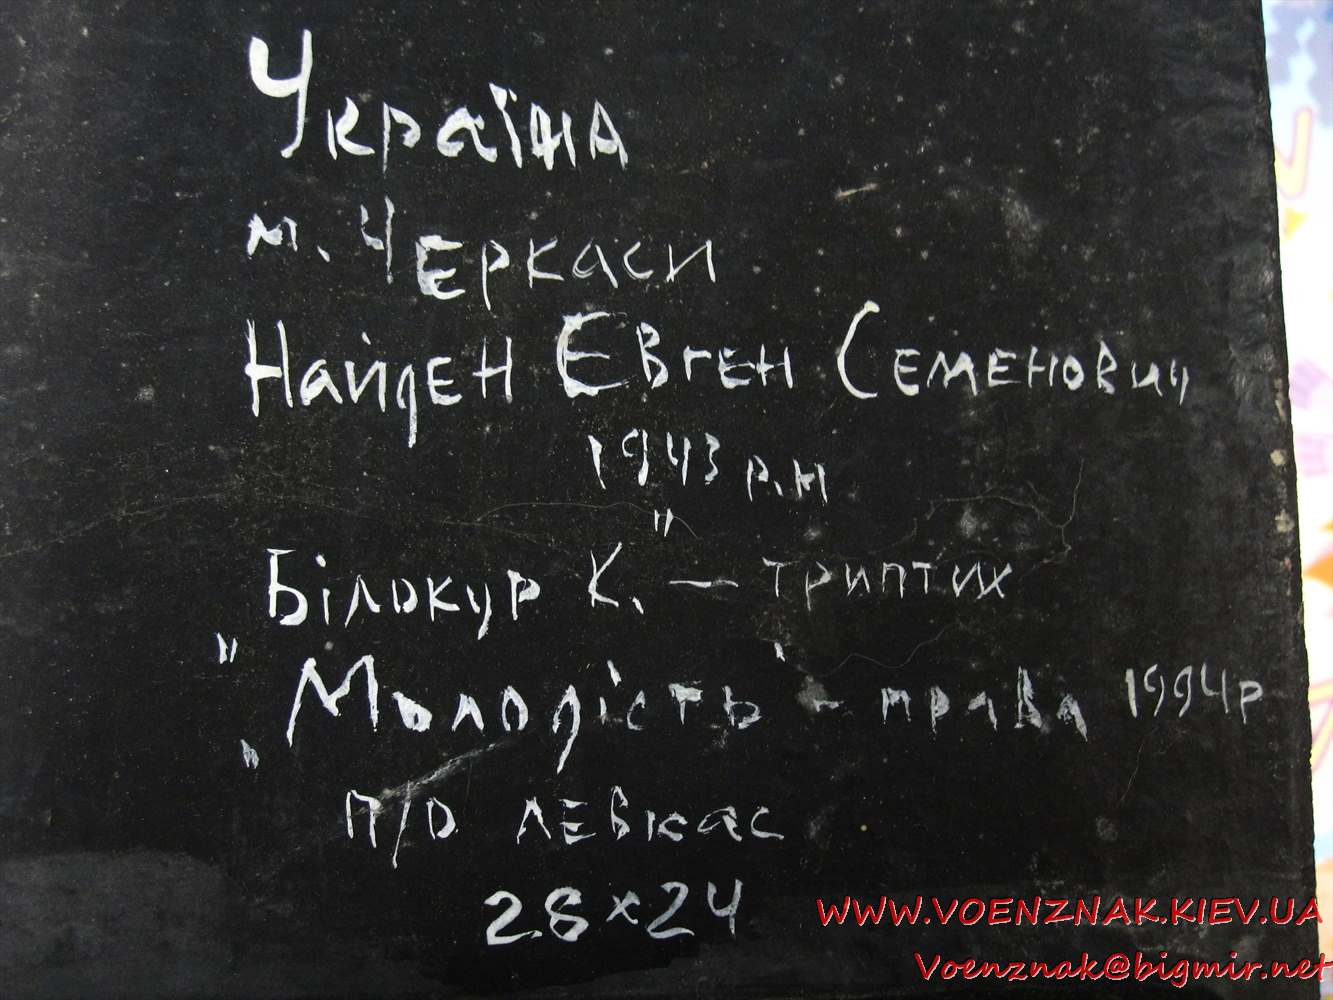 Україна
м. Черкаси
Найден Євген Семенович
1943 р.н
"Білокур К." – триптих
"Молодість" - права 1994р
п/о левкас
28x24
WWW.VOENZNAK.KIEV.UA
Voenznak@bigmir.net